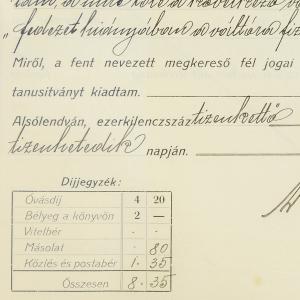 „fedezet hiányában a váltóra fiz
Miről, a fent nevezett megkereső fél jogai
tanusitványt kiadtam.
Alsólendván, ezerkilenczszáz tizenkettő
tizenhetedik napján.
Dijjegyzék:
Óvásdij 4 20
Bélyeg a könyvön 2 —
Vitelbér . .
Másolat . 80
Közlés és postabér 1. 35
Összesen 8. 35